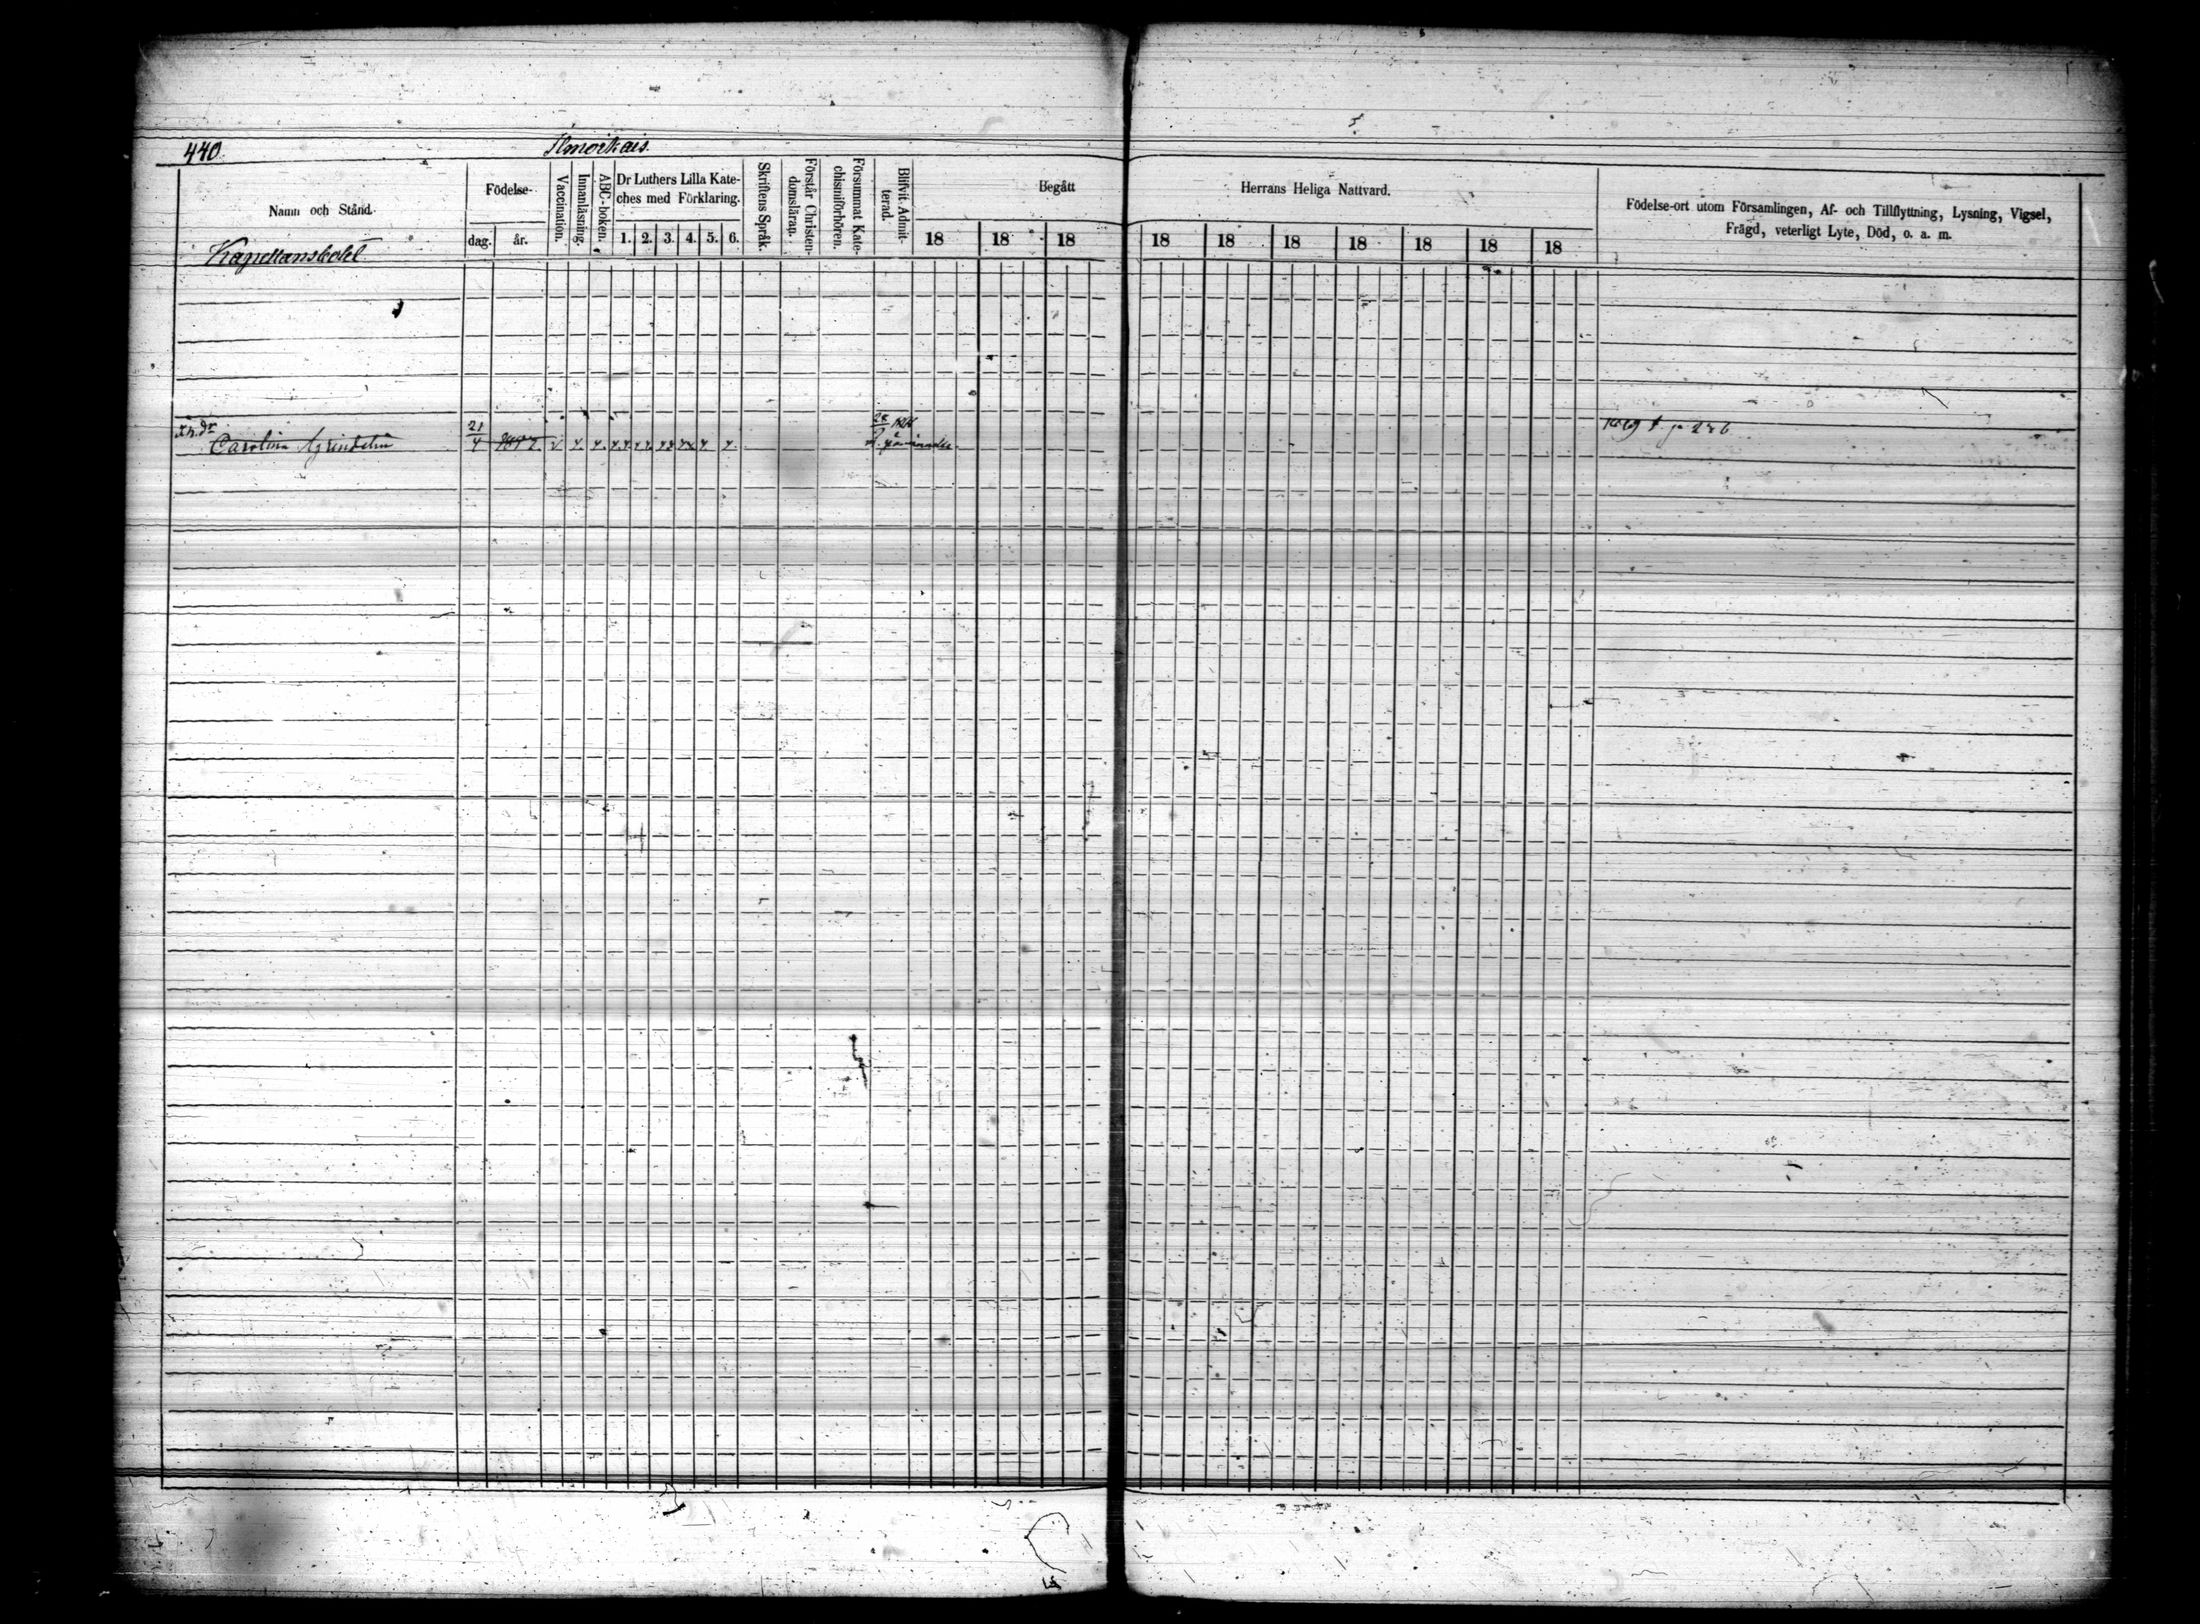 440.
Namn och Stånd.
Födelse-
dag.
år.
Vaccination.
Innanläsning.
ABC-boken.
Dr Luthers Lilla Kate-
ches med Förklaring.
1. 2. 3. 4. 5. 6.
Skriftens Språk.
Förstår Christen-
domsläran.
Försummat Kate-
chismiförhören.
Blifvit Admit-
terad.
Begått
Herrans Heliga Nattvard.
18 18 18 18 18 18 18 18 18 18
Födelse-ort utom Församlingen, Af- och Tillflyttning, Lysning, Vigsel,
Frägd, veterligt Lyte, Död, o. a. m.
Kapellansbolet
Carolina
21
4